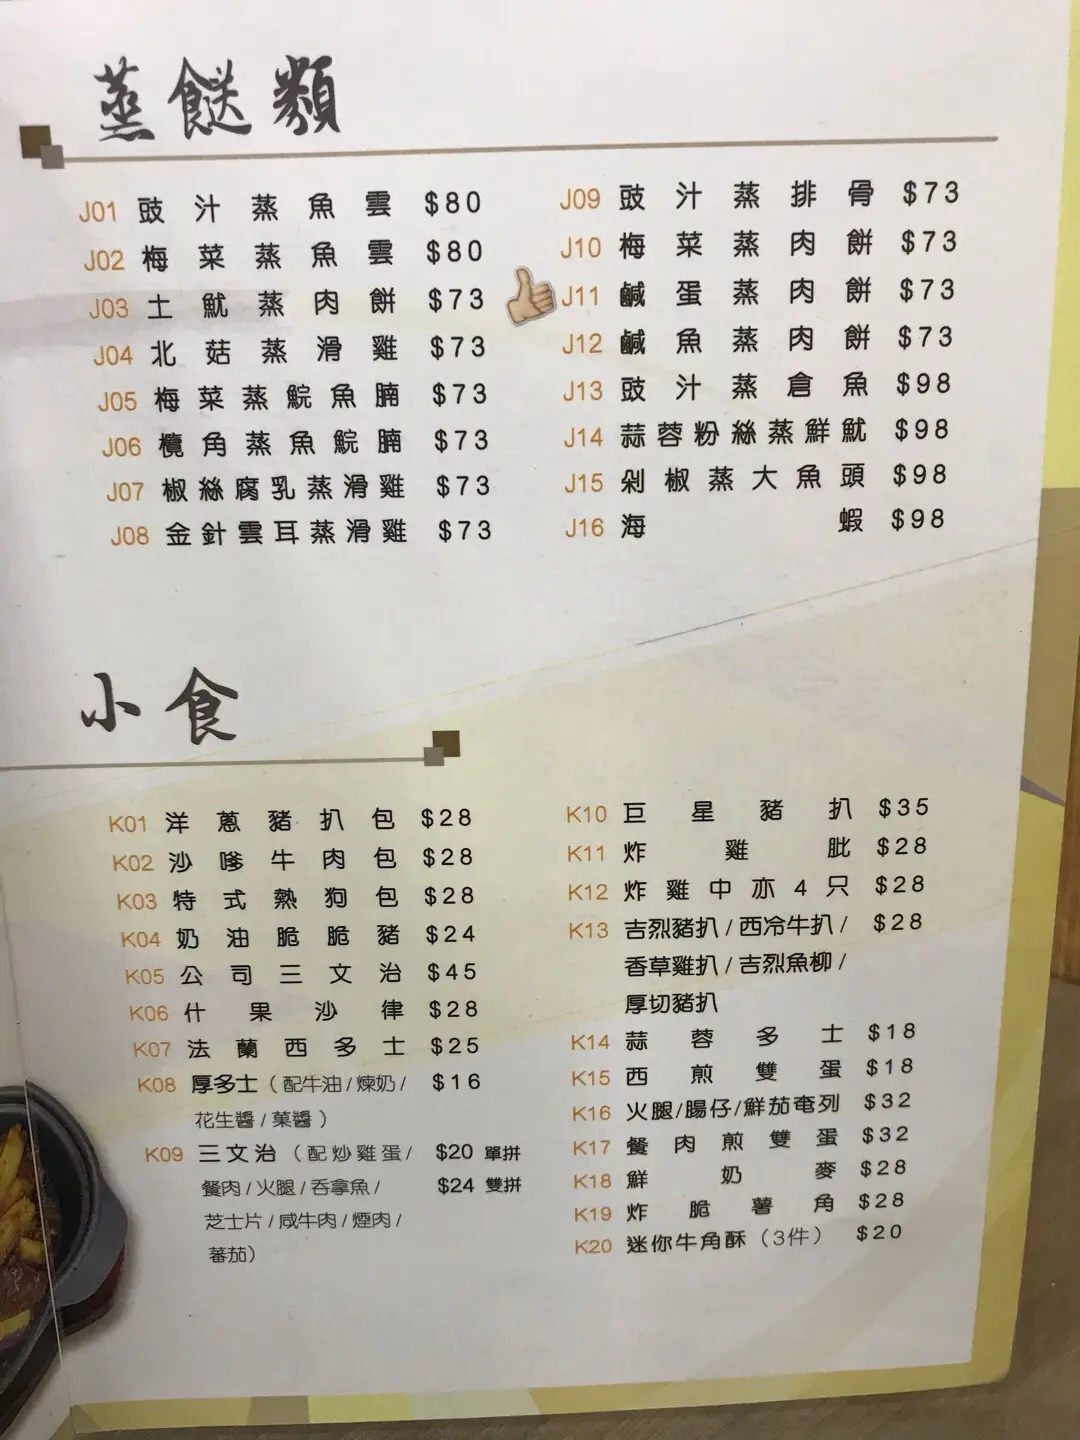 蒸餸類
J01 豉汁蒸魚雲 $80
J02 梅菜蒸魚雲 $80
J03 土魷蒸肉餅 $73
J04 北菇蒸滑雞 $73
J05 梅菜蒸鯇魚腩 $73
J06 欖角蒸魚鯇腩 $73
J07 椒絲腐乳蒸滑雞 $73
J08 金針雲耳蒸滑雞 $73
J09 豉汁蒸排骨 $73
J10 梅菜蒸肉餅 $73
J11 鹹蛋蒸肉餅 $73
J12 鹹魚蒸肉餅 $73
J13 豉汁蒸倉魚 $98
J14 蒜蓉粉絲蒸鮮魷 $98
J15 剁椒蒸大魚頭 $98
J16 海蝦 $98
小食
K01 洋蔥豬扒包 $28
K02 沙嗲牛肉包 $28
K03 特式熱狗包 $28
K04 奶油脆脆豬 $24
K05 公司三文治 $45
K06 什果沙律 $28
K07 法蘭西多士 $25
K08 厚多士（配牛油/煉奶/ $16
花生醬/菓醬）
K09 三文治（配炒雞蛋/ $20 單拼
餐肉/火腿/吞拿魚/ $24 雙拼
芝士片/咸牛肉/煙肉/
蕃茄）
K10 巨星豬扒 $35
K11 炸雞肶 $28
K12 炸雞中亦4只 $28
K13 吉烈豬扒/西冷牛扒/ $28
香草雞扒/吉烈魚柳/
厚切豬扒
K14 蒜蓉多士 $18
K15 西煎雙蛋 $18
K16 火腿/腸仔/鮮茄奄列 $32
K17 餐肉煎雙蛋 $32
K18 鮮奶麥 $28
K19 炸脆薯角 $28
K20 迷你牛角酥（3件） $20